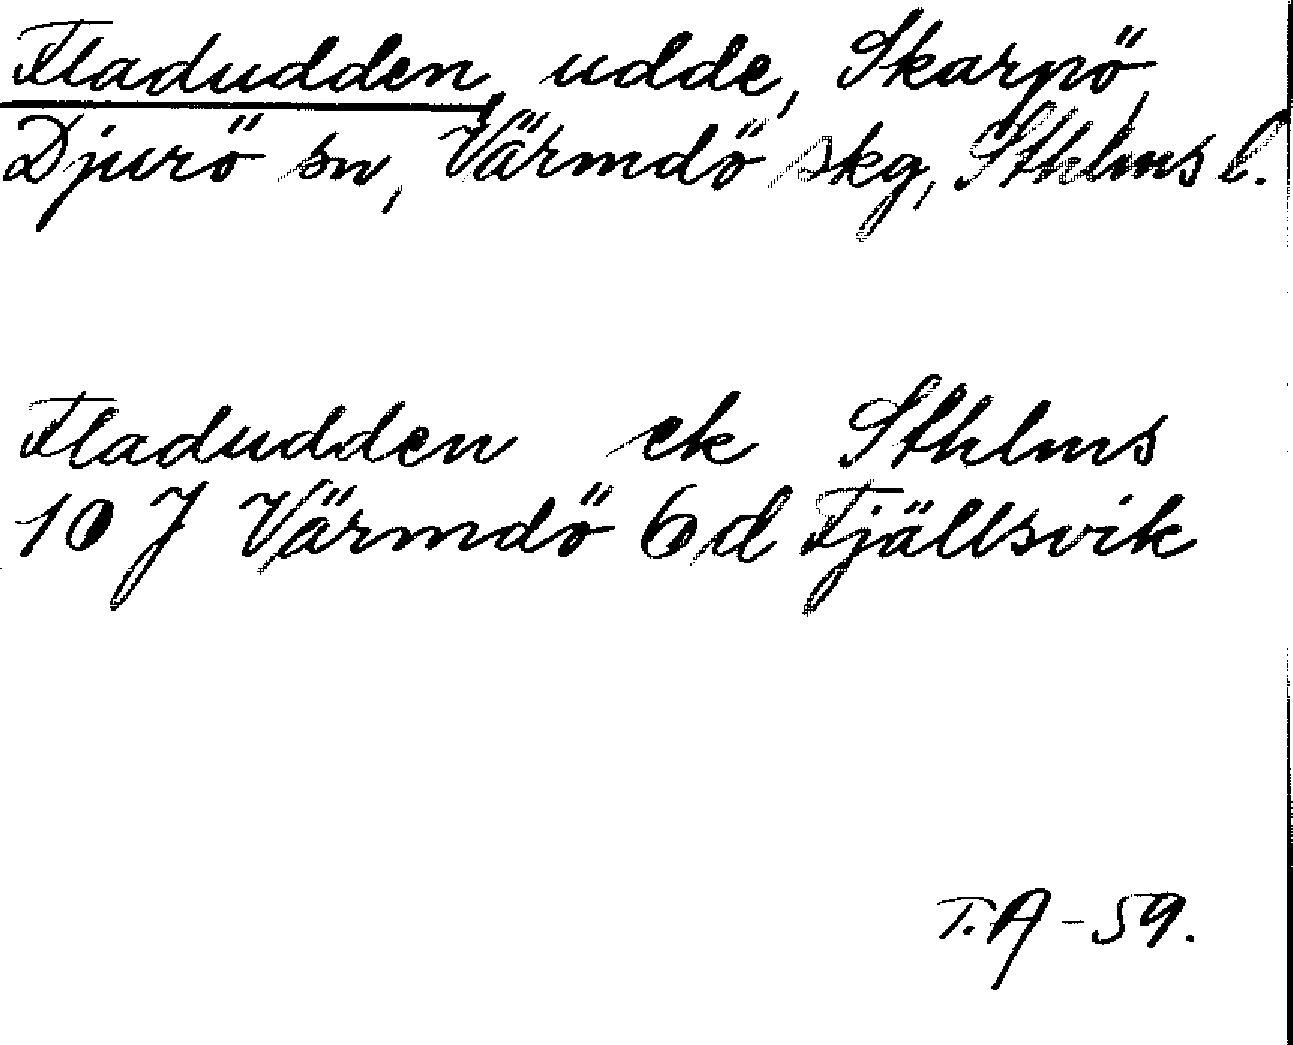 Fladudden, udde, Skarpö,
Djurö sn, Värmdö skg, Sthlms l.
Fladudden ek Sthlms
10 J Värmdö 6d Fjällsvik
T.A-59.